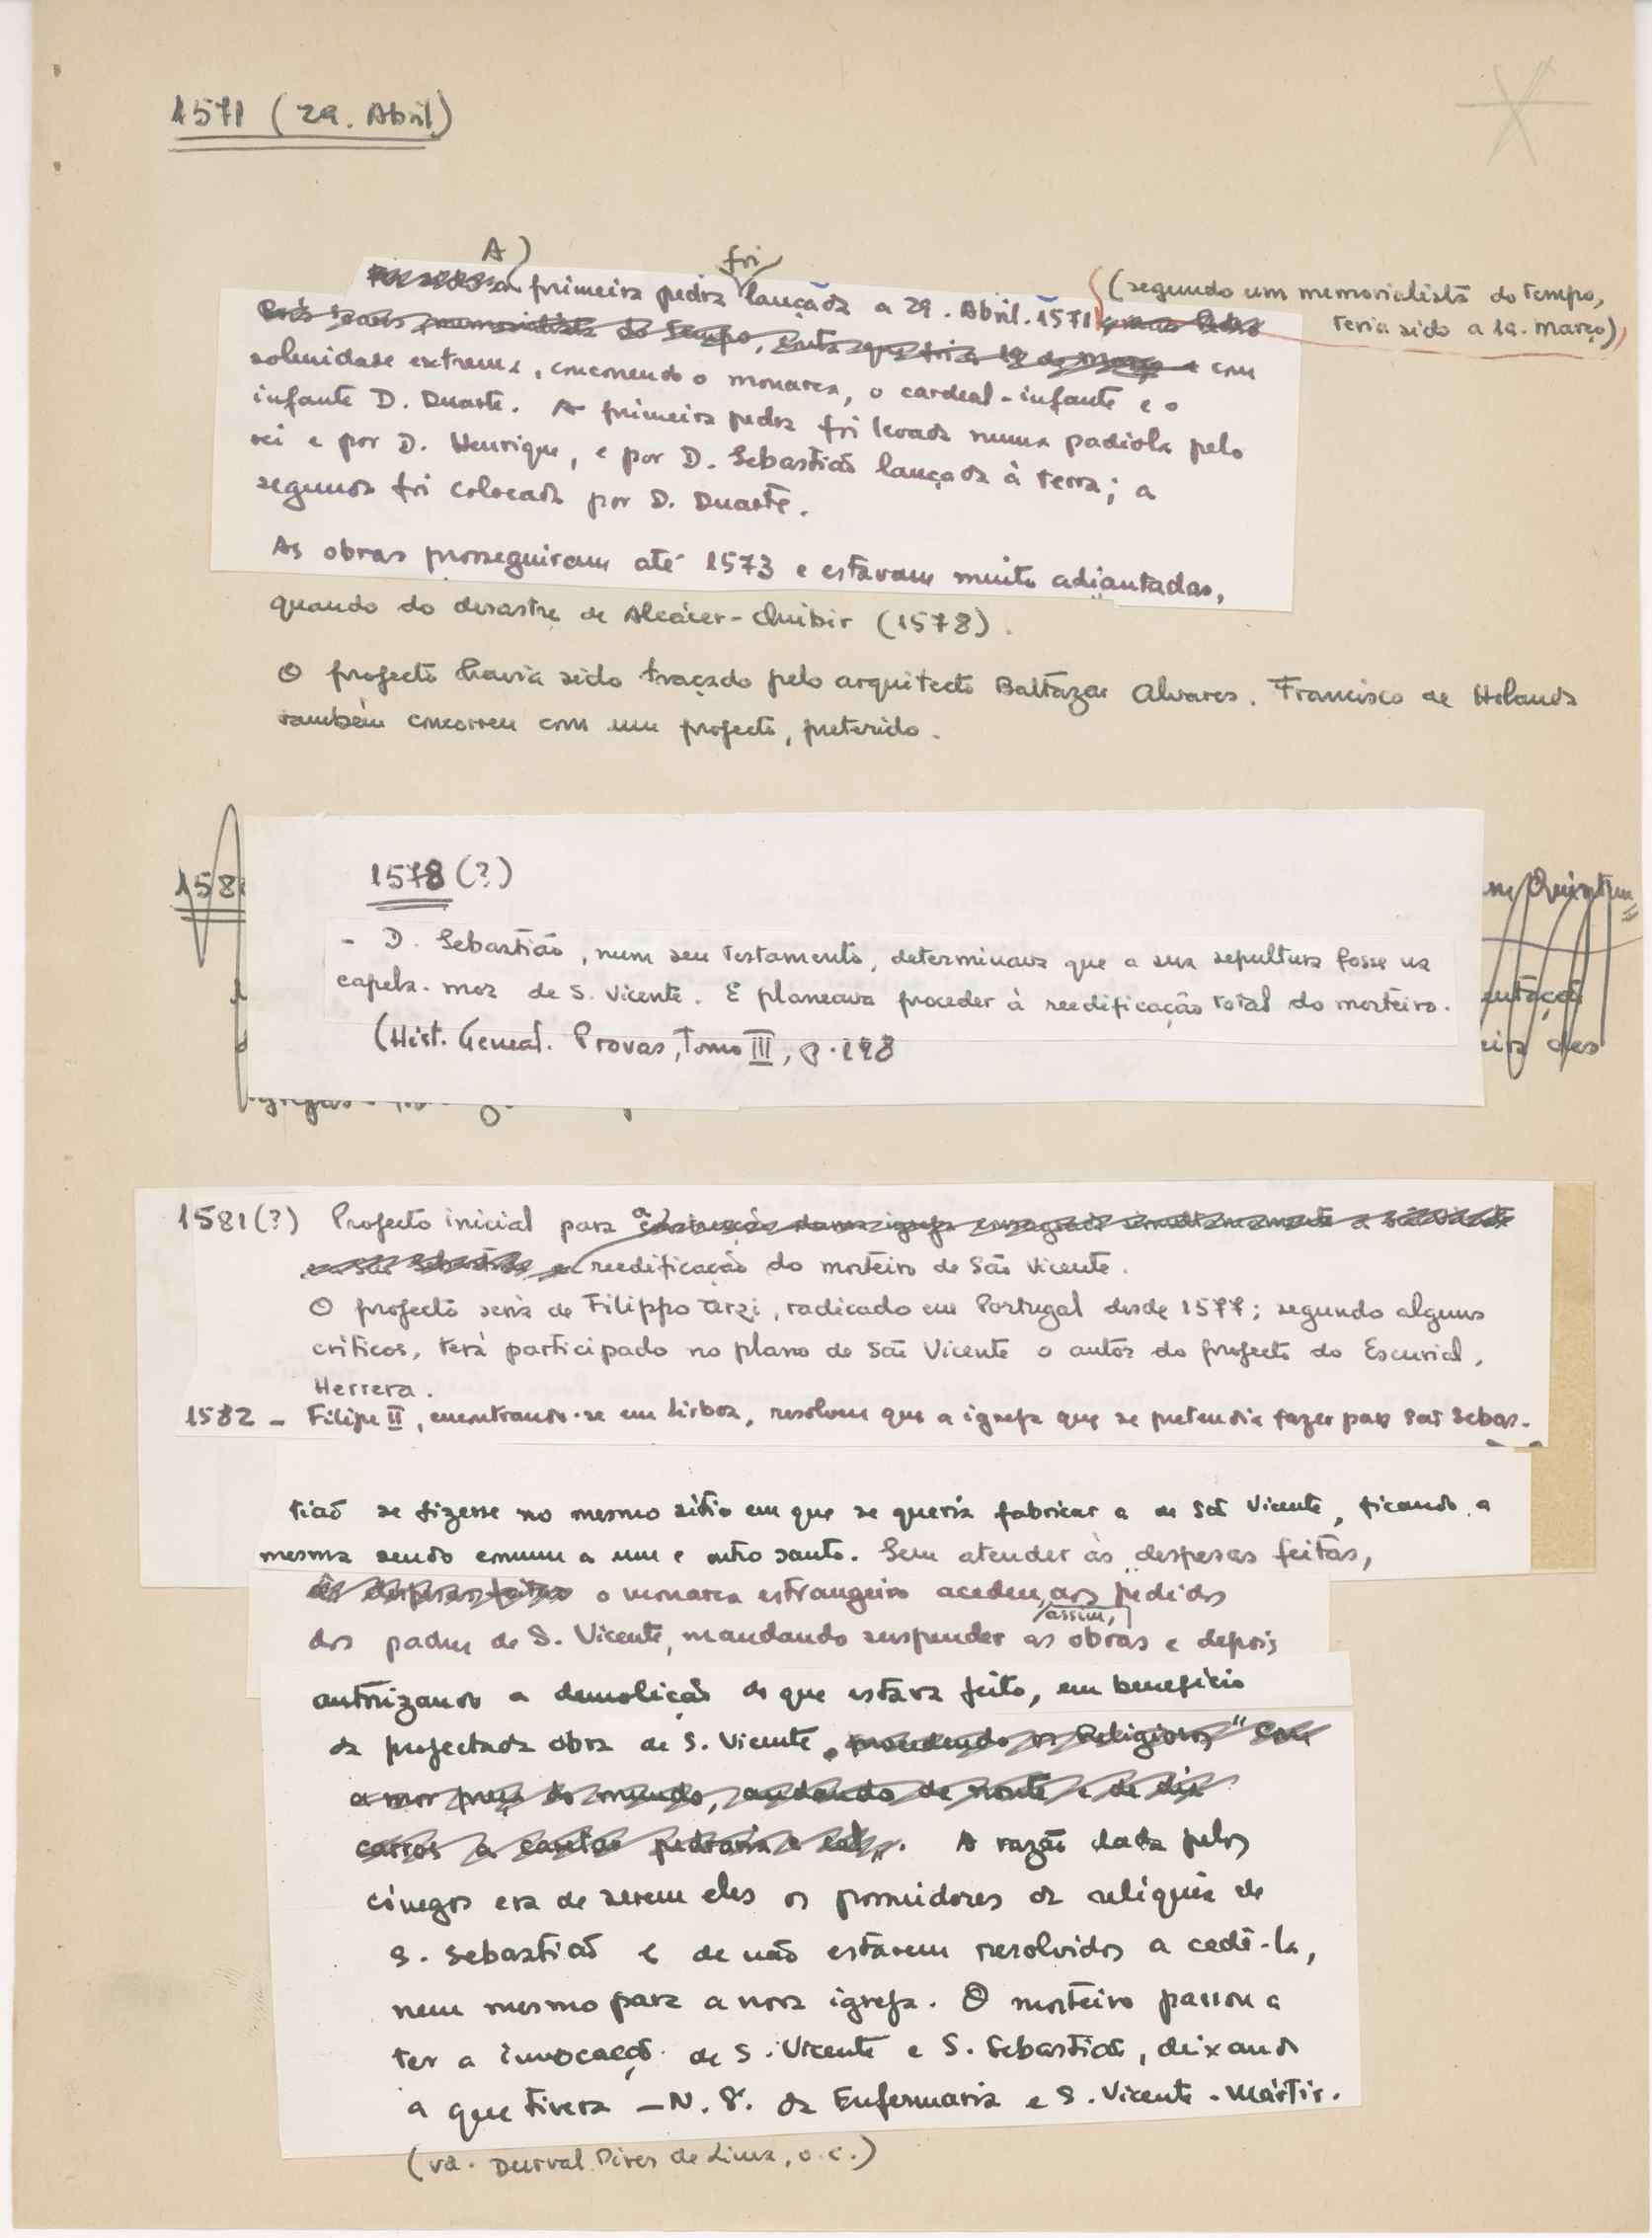 1571 (29. Abril)
A) primeira pedra foi lançada a 29. Abril. 1571 (segundo um memorialista do tempo,
teria sido a 19. Março),
Soares, memorialista do tempo, com
solenidade extrema, concorrendo o monarca, o cardeal-infante e o
infante D. Duarte. A primeira pedra foi levada numa padiola pelo
rei e por D. Henrique, e por D. Sebastião lançada à terra; a
segunda foi colocada por D. Duarte.
As obras prosseguiram até 1573 e estavam muito adiantadas,
quando do desastre de Alcácer-Quibir (1578).
O projecto havia sido traçado pelo arquitecto Baltazar Alvares. Francisco de Holanda
também concorreu com um projecto, preterido.
158
1578 (?)
- D. Sebastião, num seu testamento, determinava que a sua sepultura fosse na
capela-mor de S. Vicente. E planeava proceder à reedificação total do mosteiro.
(Hist. Geneal. Provas, Tomo III, p. 198
1581(?) Projecto inicial para a construção duma igreja consagrada simultaneamente a São Vicente
e a São Sebastião e reedificação do mosteiro de São Vicente.
O projecto seria de Filippo Terzi, radicado em Portugal desde 1577; segundo alguns
críticos, terá participado no plano de São Vicente o autor do projecto do Escurial,
Herrera.
1582 - Filipe II, encontrando-se em Lisboa, resolveu que a igreja que se pretendia fazer para São Sebas-
tião se fizesse no mesmo sítio em que se queria fabricar a de São Vicente, ficando a
mesma sendo comum a um e outro santo. Sem atender às despesas feitas,
às despesas feitas o monarca estrangeiro acedeu aos pedidos
dos padres de S. Vicente, mandando suspender assim, as obras e depois
autorizando a demolição do que estava feito, em benefício
da projectada obra de S. Vicente, os Religiosos "com
a mor preça do mundo, andando de noute e de dia
carros a carretar pedraria e cal". A razão dada pelos
cónegos era de serem eles os possuidores da relíquia de
S. Sebastião e de não estarem resolvidos a cedê-la,
nem mesmo para a nova igreja. O mosteiro passou a
ter a invocação de S. Vicente e S. Sebastião, deixando
a que tivera — N. Sª. da Enfermaria e S. Vicente-Mártir.
(vd. Durval Pires de Lima, o. c.)